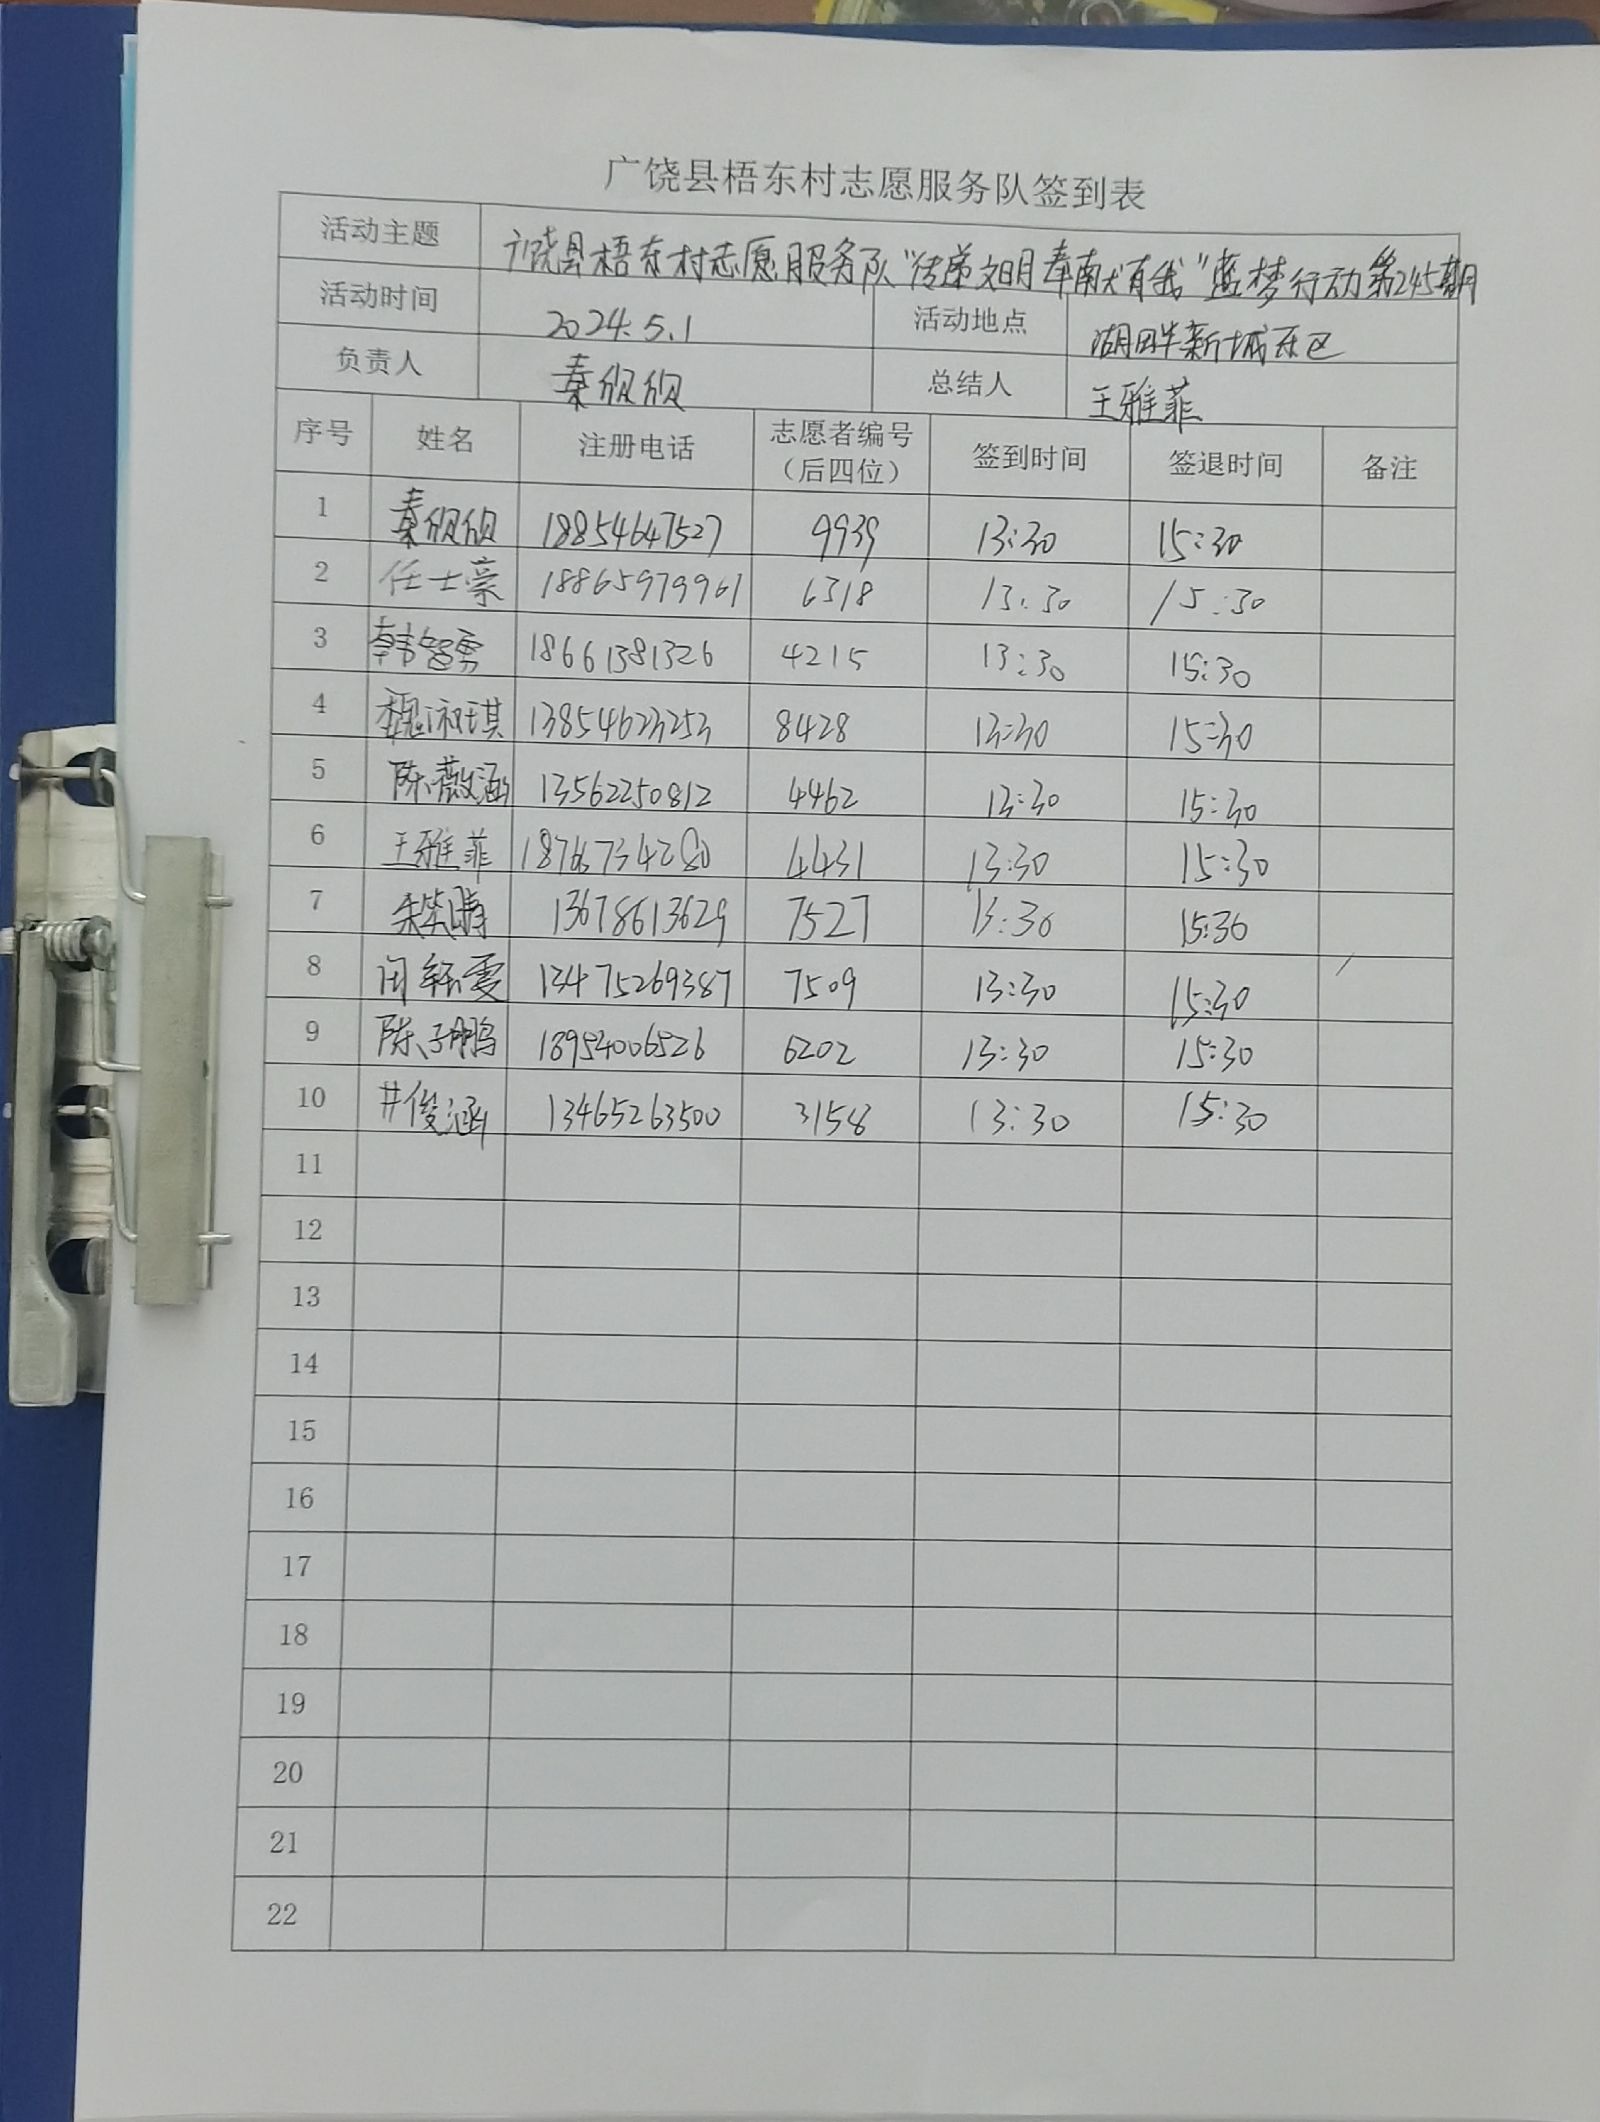 广饶县梧东村志愿服务队签到表
活动主题 广饶县梧东村志愿服务队“传递文明奉献有我”蓝梦行动第245期
活动时间 2024.5.1 活动地点 湖畔新城东区
负责人 秦欣欣 总结人 王雅菲
序号 姓名 注册电话 志愿者编号（后四位） 签到时间 签退时间 备注
1 秦欣欣 18854647527 9939 13:30 15:30
2 任士豪 18865979961 6318 13:30 15:30
3 韩智勇 18661381326 4215 13:30 15:30
4 魏淑琪 13854623253 8428 13:30 15:30
5 陈薇涵 13562250812 4462 13:30 15:30
6 王雅菲 18766734280 4431 13:30 15:30
7 13678613629 7527 13:30 15:30
8 13475269387 7509 13:30 15:30
9 陈子鹏 18954006526 6202 13:30 15:30
10 井俊涵 13465263500 3158 13:30 15:30
11
12
13
14
15
16
17
18
19
20
21
22